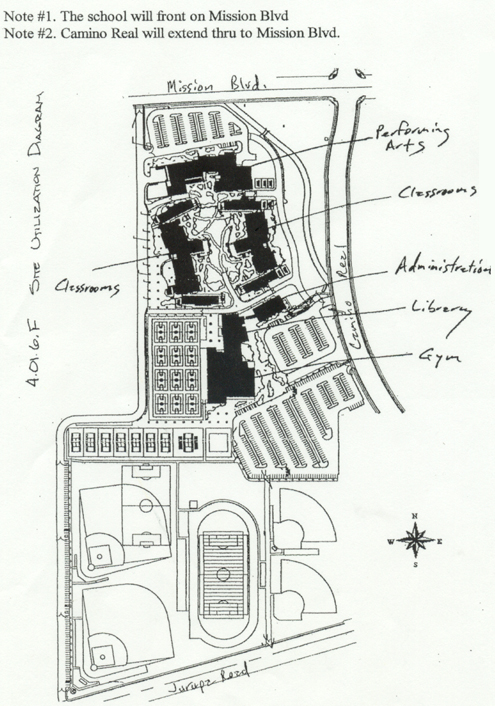 Note #1. The school will front on Mission Blvd
Note #2. Camino Real will extend thru to Mission Blvd.
Mission Blvd.
4.01.6.F Site Utilization Diagram
Performing
Arts
Classrooms
Camino Real
Administration
Classrooms
Library
Gym
N
W E
S
Jurupa Road